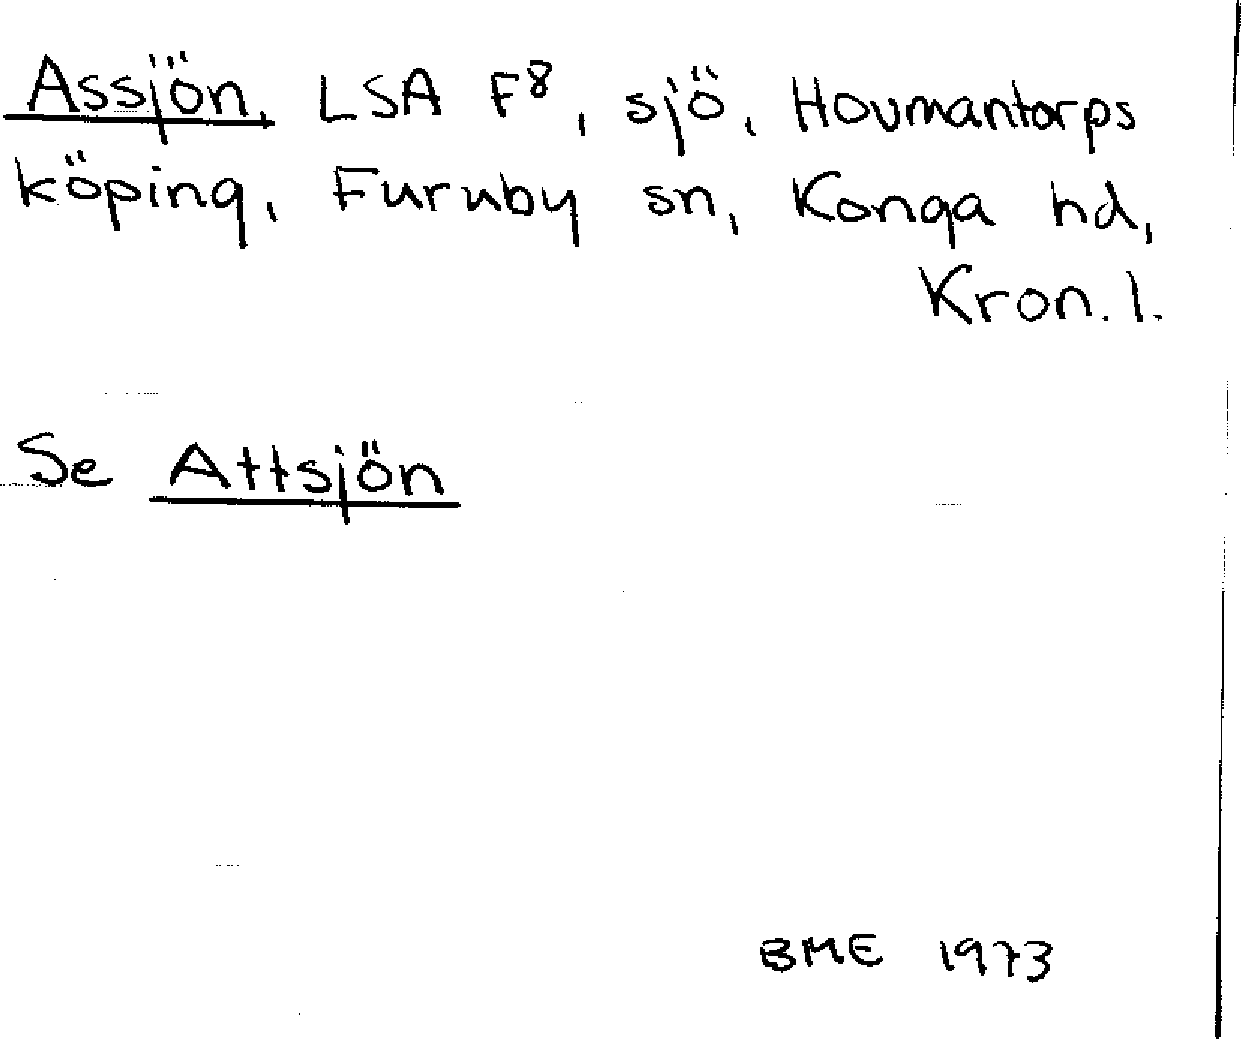 Assjön, LSA F⁸, sjö, Hovmantorps
köping, Furuby sn, Konga hd,
Kron. l.
Se Attsjön
BME 1973